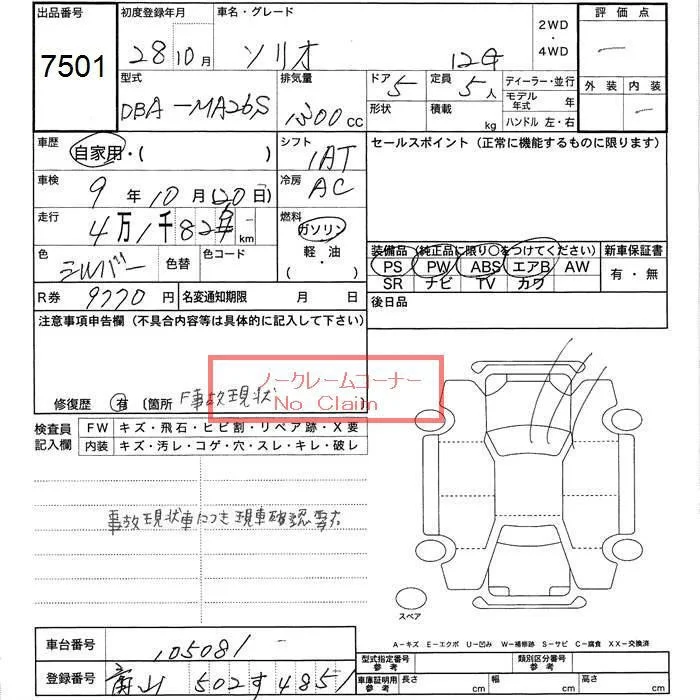 出品番号 初度登録年月 車名・グレード 2WD・4WD 評価点
7501 28年10月 ソリオ 1.2G
型式 排気量 ドア 5 定員 5人 ディーラー・並行 外装 内装
DBA-MA26S 1300CC 形状 積載 kg モデル年式 年
ハンドル 左・右
車歴 自家用・( ) シフト IAT セールスポイント(正常に機能するものに限ります)
車検 9年10月(20日) 冷房 AC
走行 4万1千82 km 燃料 ガソリン 軽・油 ( )
色 シルバー 色替 色コード
装備品(純正品に限り○をつけてください) 新車保証書
PS PW ABS エアB AW 有・無
SR ナビ TV カワ
R券 9770円 名変通知期限 月 日 後日品
注意事項申告欄(不具合内容等は具体的に記入して下さい)
ノークレームコーナー
No Claim
修復歴 有 〔箇所 F事故現状 〕
検査員記入欄 FW キズ・飛石・ヒビ割・リペア跡・X要
内装 キズ・汚レ・コゲ・穴・スレ・キレ・破レ
事故現状車につき現車確認要
スペア
A-キズ E-エクボ U-凹み W-補修跡 S-サビ C-腐食 XX-交換済
車台番号 105081
型式指定番号 参考 類別区分番号 参考
登録番号 502す4851
車庫証明用 参考 長さ cm 幅 cm 高さ cm